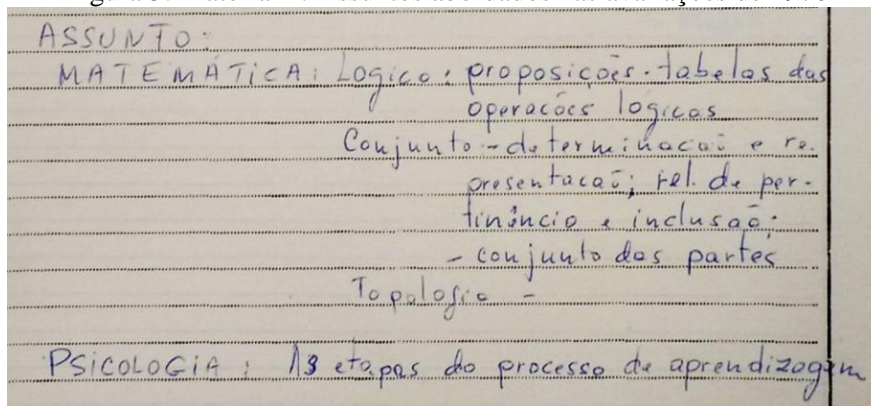 ASSUNTO:
MATEMÁTICA: Logica: proposições. tabelas das
operacões logicas
Conjunto - determinacaõ e re-
presentacaõ; rel. de per-
tinência e inclusão;
- conjunto das partes
Topologia -
PSICOLOGIA: As etapas do processo de aprendizagem